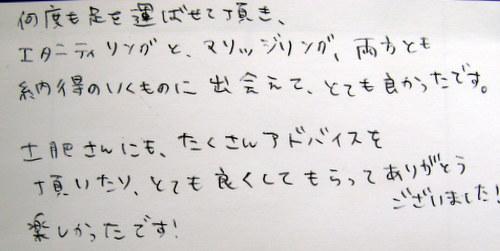 何度も足を運ばせて頂き、
エタニティリングと、マリッジリング、両方とも
納得のいくものに出会えて、とても良かったです。
土肥さんにも、たくさんアドバイスを
頂いたり、とても良くしてもらってありがとう
ございました!
楽しかったです!